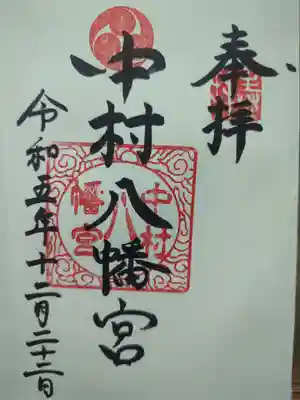 奉拝
中村八幡宮
中村
八
幡宮
令和五年十二月二十三日